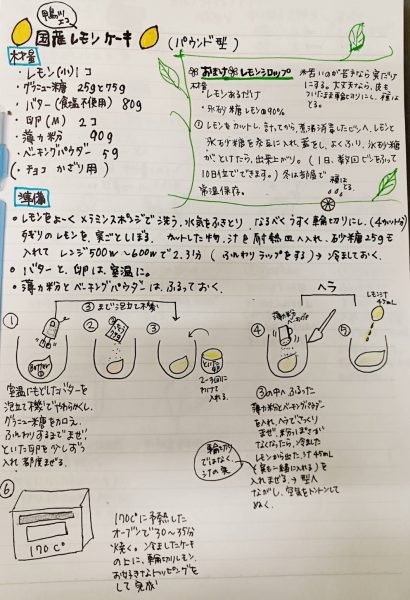 鴨川
エコ
国産レモンケーキ
(パウンド型)
材料
・レモン(小)1コ
・グラニュー糖 25gと75g
・バター(食塩不使用) 80g
・卵(M) 2コ
・薄力粉 90g
・ベーキングパウダー 5g
(・チョコ かざり用)
おまけ レモンシロップ
材料
・レモンあるだけ
・氷砂糖 レモンの90%
①レモンをカットし、計ってから、煮沸消毒したビンへ、レモンと
氷砂糖を交互に入れ、蓋をし、よくふり、氷砂糖
がとけたら、出来上がり。(1日、数回ビンをふって
10日位でできます。)冬は部屋で
常温保存。
※苦いのが苦手なら実だけ
にする。大丈夫なら、皮も
ついたまま輪切りにし、種は
とる。
種は
とる。
準備
・レモンをよ〜くメラミンスポンジで洗う。水気をふきとり、なるべくうすく輪切りにし、(4カット分)
残りのレモンを、実ごとしぼる。カットした物、汁を耐熱皿へ入れ、砂糖25gも
入れてレンジ500w〜600wで2.3分(ふんわりラップをする)→冷ましておく。
・バターと、卵は、室温に。
・薄力粉とベーキングパウダーは、ふるっておく。
③まで泡立て器
ヘラ
①
Butter
②
③
といた
卵
2〜3回に
わけて
入れる。
④
薄力粉
⑤
レモン汁
45ml
室温にもどしたバターを
泡立て器でやわらかくし、
グラニュー糖をカロえ、
ふんわりするまでまぜ、
といた卵を少しずつ
入れ都度まぜる。
③の中へふるった
薄力粉とベーキングパウダー
を入れ、ヘラでさっくり
まぜ、粉っぽさが
なくなったら、冷ました
レモンから出た汁45ml
(実も一緒に入れる)を
入れまぜる→型へ
ながし、空気をトントンして
ぬく。
輪切り
ではなく、
汁の実
⑥
170C°
170C°に予熱した
オーブンで30〜35分
焼く。冷ましたケーキ
の上に、輪切りレモン、
お好きなトッピングを
して完成